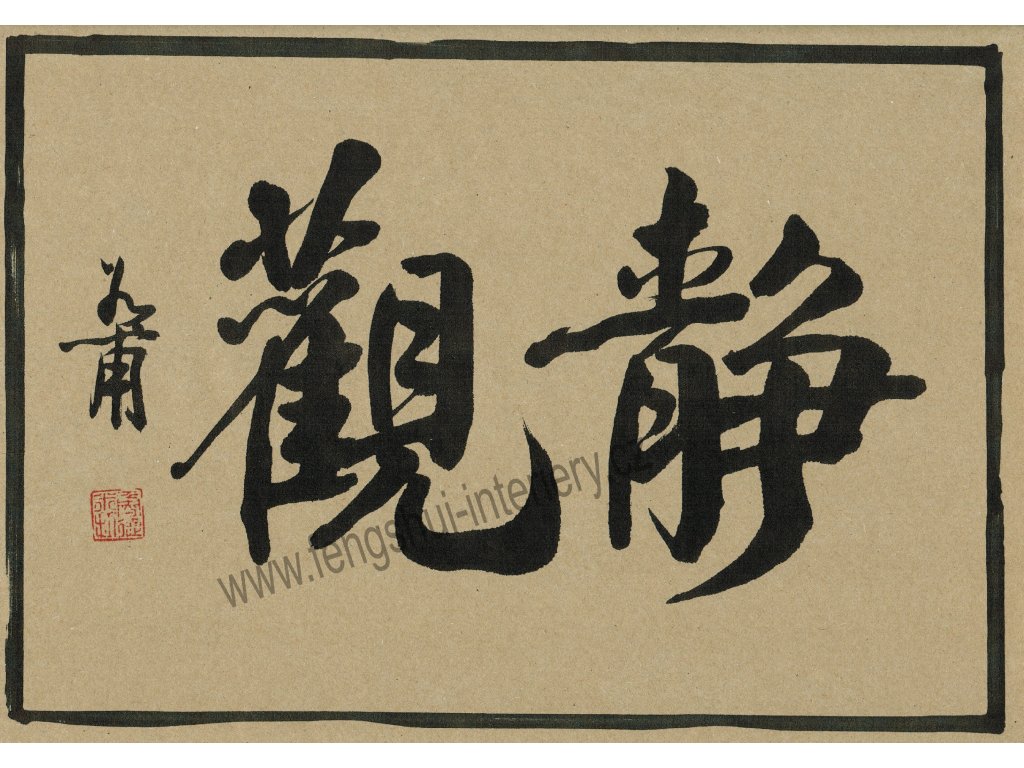 靜觀
www.fengshui-interiery.cz